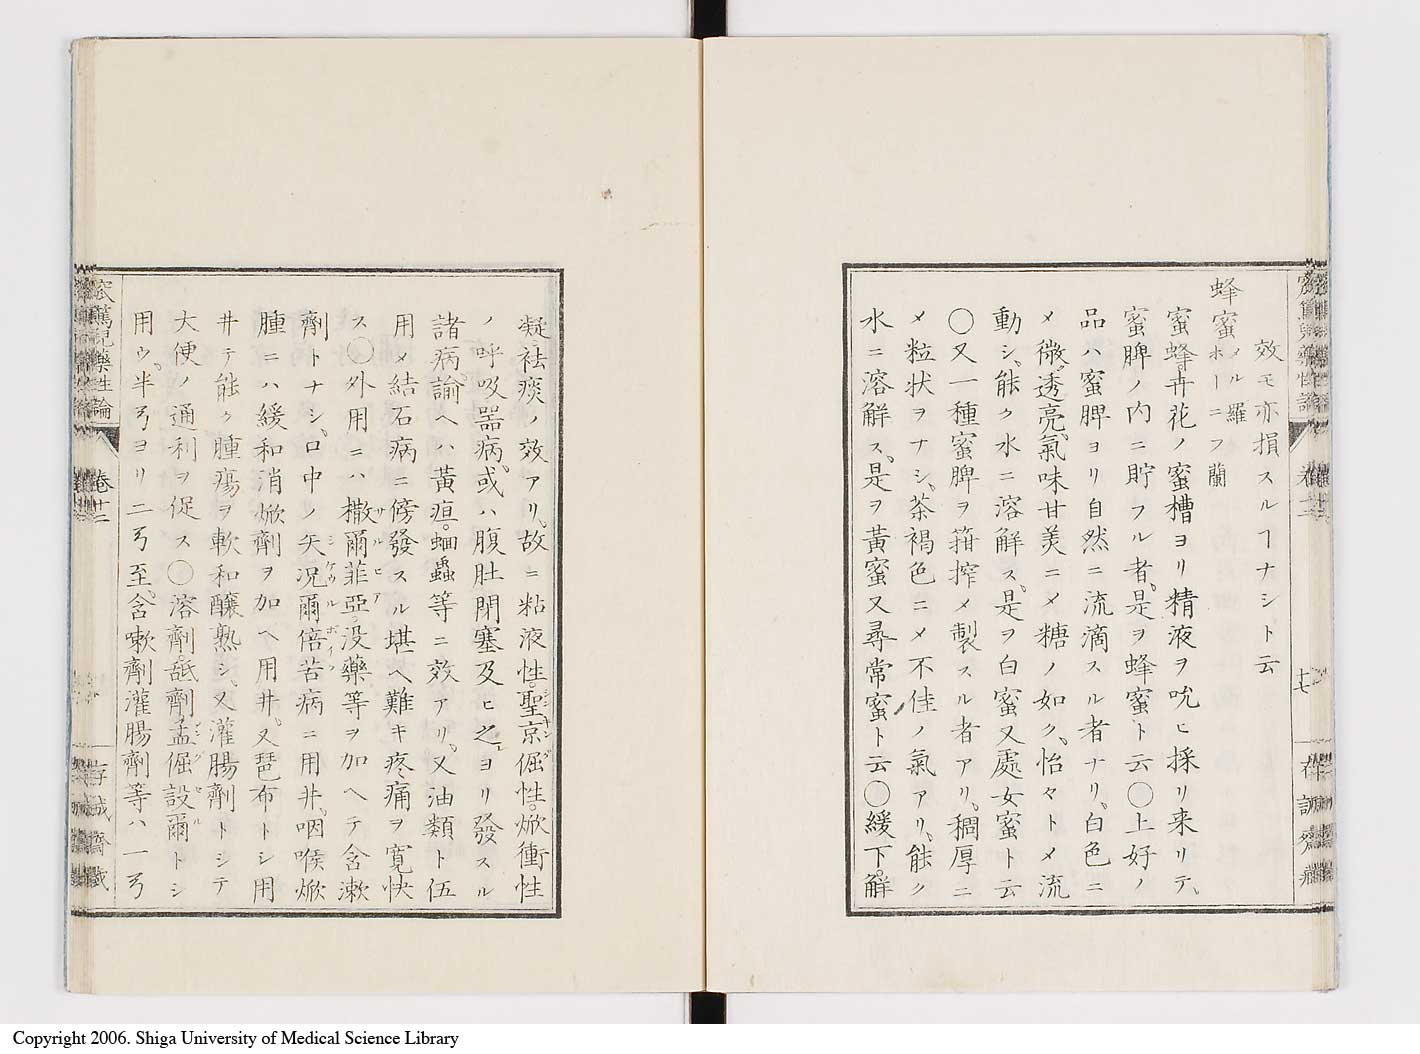 效モ亦損スルヿナシト云
蜂蜜 メル羅
ホーニフ蘭
蜜蜂卉花ノ蜜槽ヨリ精液ヲ吮ヒ採リ来リテ、
蜜脾ノ内ニ貯フル者。是ヲ蜂蜜ト云〇上好ノ
品ハ蜜脾ヨリ自然ニ流滴スル者ナリ。白色ニ
メ微透亮。氣味甘美ニメ糖ノ如ク。怡々トメ流
動シ。能ク水ニ溶解ス。是ヲ白蜜又處女蜜ト云
〇又一種蜜脾ヲ箝搾メ製スル者アリ。稠厚ニ
メ粒状ヲナシ。茶褐色ニメ不佳ノ氣アリ。能ク
水ニ溶解ス。是ヲ黃蜜又尋常蜜ト云〇緩下。解
凝。祛痰ノ效アリ。故ニ粘液性。聖京倔性。焮衝性
ノ呼吸器病。或ハ腹肚閉塞及ヒ之ヨリ發スル
諸病。諭ヘハ黃疸。蛔蟲等ニ效アリ。又油類ト伍
用メ結石病ニ傍發スル堪ヘ難キ疼痛ヲ寬快
ス〇外用ニハ撒爾菲亞。没藥等ヲ加ヘテ含漱
劑トナシ。口中ノ矢况爾倍苦病ニ用井。咽喉焮
腫ニハ緩和消焮劑ヲ加ヘ用井。又琶布トシ用
井テ能ク腫瘍ヲ軟和釀熟シ。又灌腸劑トシテ
大便ノ通利ヲ促ス〇溶劑。舐劑孟倔設爾トシ
用ウ。半弓ヨリ二弓至。含嗽劑灌腸劑等ハ一弓
卷十二
十七